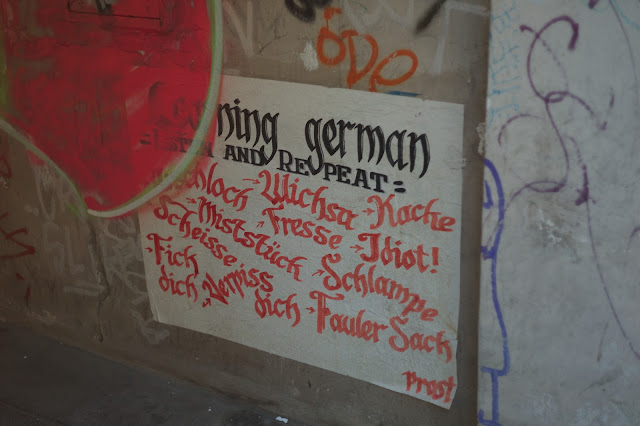 ÖDP
ning german
AND REPEAT =
hloch -Wichsa -Kacke
Scheisse -Miststück -Fresse -Idiot!
-Fick -Schlampe
dich -Verpiss dich -Fauler Sack
Prost